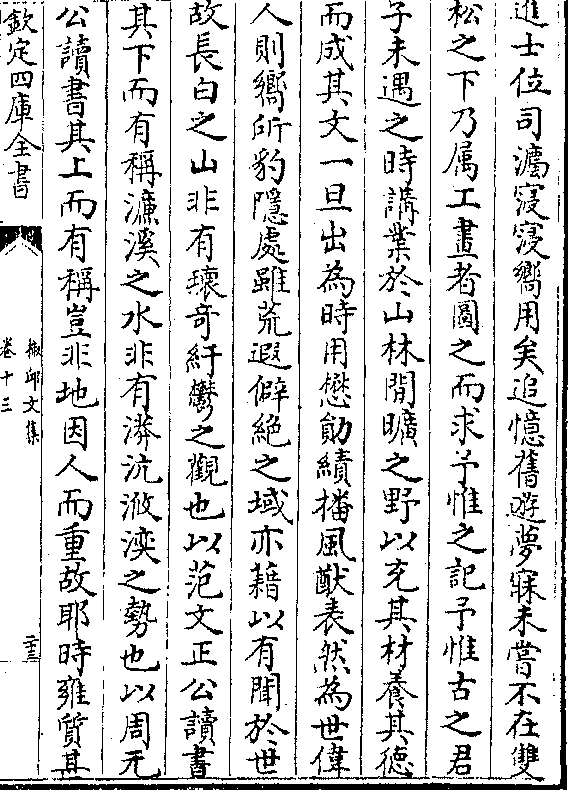 進士位司灋寖寖嚮用矣追憶舊遊夢寐未嘗不在雙
松之下乃属工畫者圖之而求予惟之記予惟古之君
子未遇之時講業於山林閒曠之野以充其材養其徳
而成其文一旦出為時用懋勛績播風猷表然為世偉
人則嚮所豹隱處雖荒遐僻絶之域亦藉以有聞於世
故長白之山非有瓌奇紆鬱之觀也以范文正公讀書
其下而有稱濓溪之水非有漭沆浟湙之勢也以周元
公讀書其上而有稱豈非地因人而重故耶時雍質其
欽定四庫全書
椒邱文集
卷十三
二十三